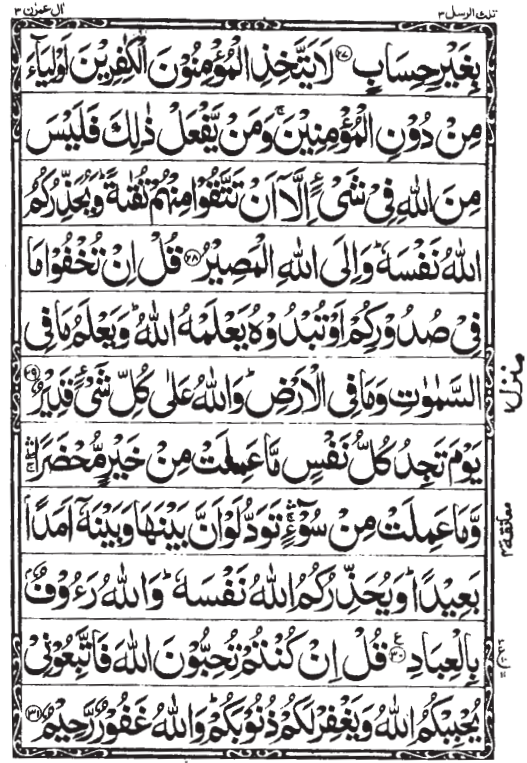 تلك الرسل ٣
اٰل عمرٰن ٣
بِغَيْرِ حِسَابٍ ﴿٢٧﴾ لَا يَتَّخِذِ الْمُؤْمِنُوْنَ الْكٰفِرِيْنَ اَوْلِيَآءَ
مِنْ دُوْنِ الْمُؤْمِنِيْنَ ۚ وَمَنْ يَّفْعَلْ ذٰلِكَ فَلَيْسَ
مِنَ اللّٰهِ فِيْ شَيْءٍ اِلَّاۤ اَنْ تَتَّقُوْا مِنْهُمْ تُقٰىةً ؕ وَيُحَذِّرُكُمُ
اللّٰهُ نَفْسَهٗ ؕ وَاِلَى اللّٰهِ الْمَصِيْرُ ﴿٢٨﴾ قُلْ اِنْ تُخْفُوْا مَا
فِيْ صُدُوْرِكُمْ اَوْ تُبْدُوْهُ يَعْلَمْهُ اللّٰهُ ؕ وَيَعْلَمُ مَا فِي
السَّمٰوٰتِ وَمَا فِي الْاَرْضِ ؕ وَاللّٰهُ عَلٰى كُلِّ شَيْءٍ قَدِيْرٌ ﴿٢٩﴾
يَوْمَ تَجِدُ كُلُّ نَفْسٍ مَّا عَمِلَتْ مِنْ خَيْرٍ مُّحْضَرًا ۛۚ
وَّمَا عَمِلَتْ مِنْ سُوْٓءٍ ۛۚ تَوَدُّ لَوْ اَنَّ بَيْنَهَا وَبَيْنَهٗۤ اَمَدًۢا
بَعِيْدًا ؕ وَيُحَذِّرُكُمُ اللّٰهُ نَفْسَهٗ ؕ وَاللّٰهُ رَءُوْفٌۢ
بِالْعِبَادِ ﴿٣٠﴾ ع قُلْ اِنْ كُنْتُمْ تُحِبُّوْنَ اللّٰهَ فَاتَّبِعُوْنِيْ
يُحْبِبْكُمُ اللّٰهُ وَيَغْفِرْ لَكُمْ ذُنُوْبَكُمْ ؕ وَاللّٰهُ غَفُوْرٌ رَّحِيْمٌ ﴿٣١﴾
منزل ١
معانقة ٢